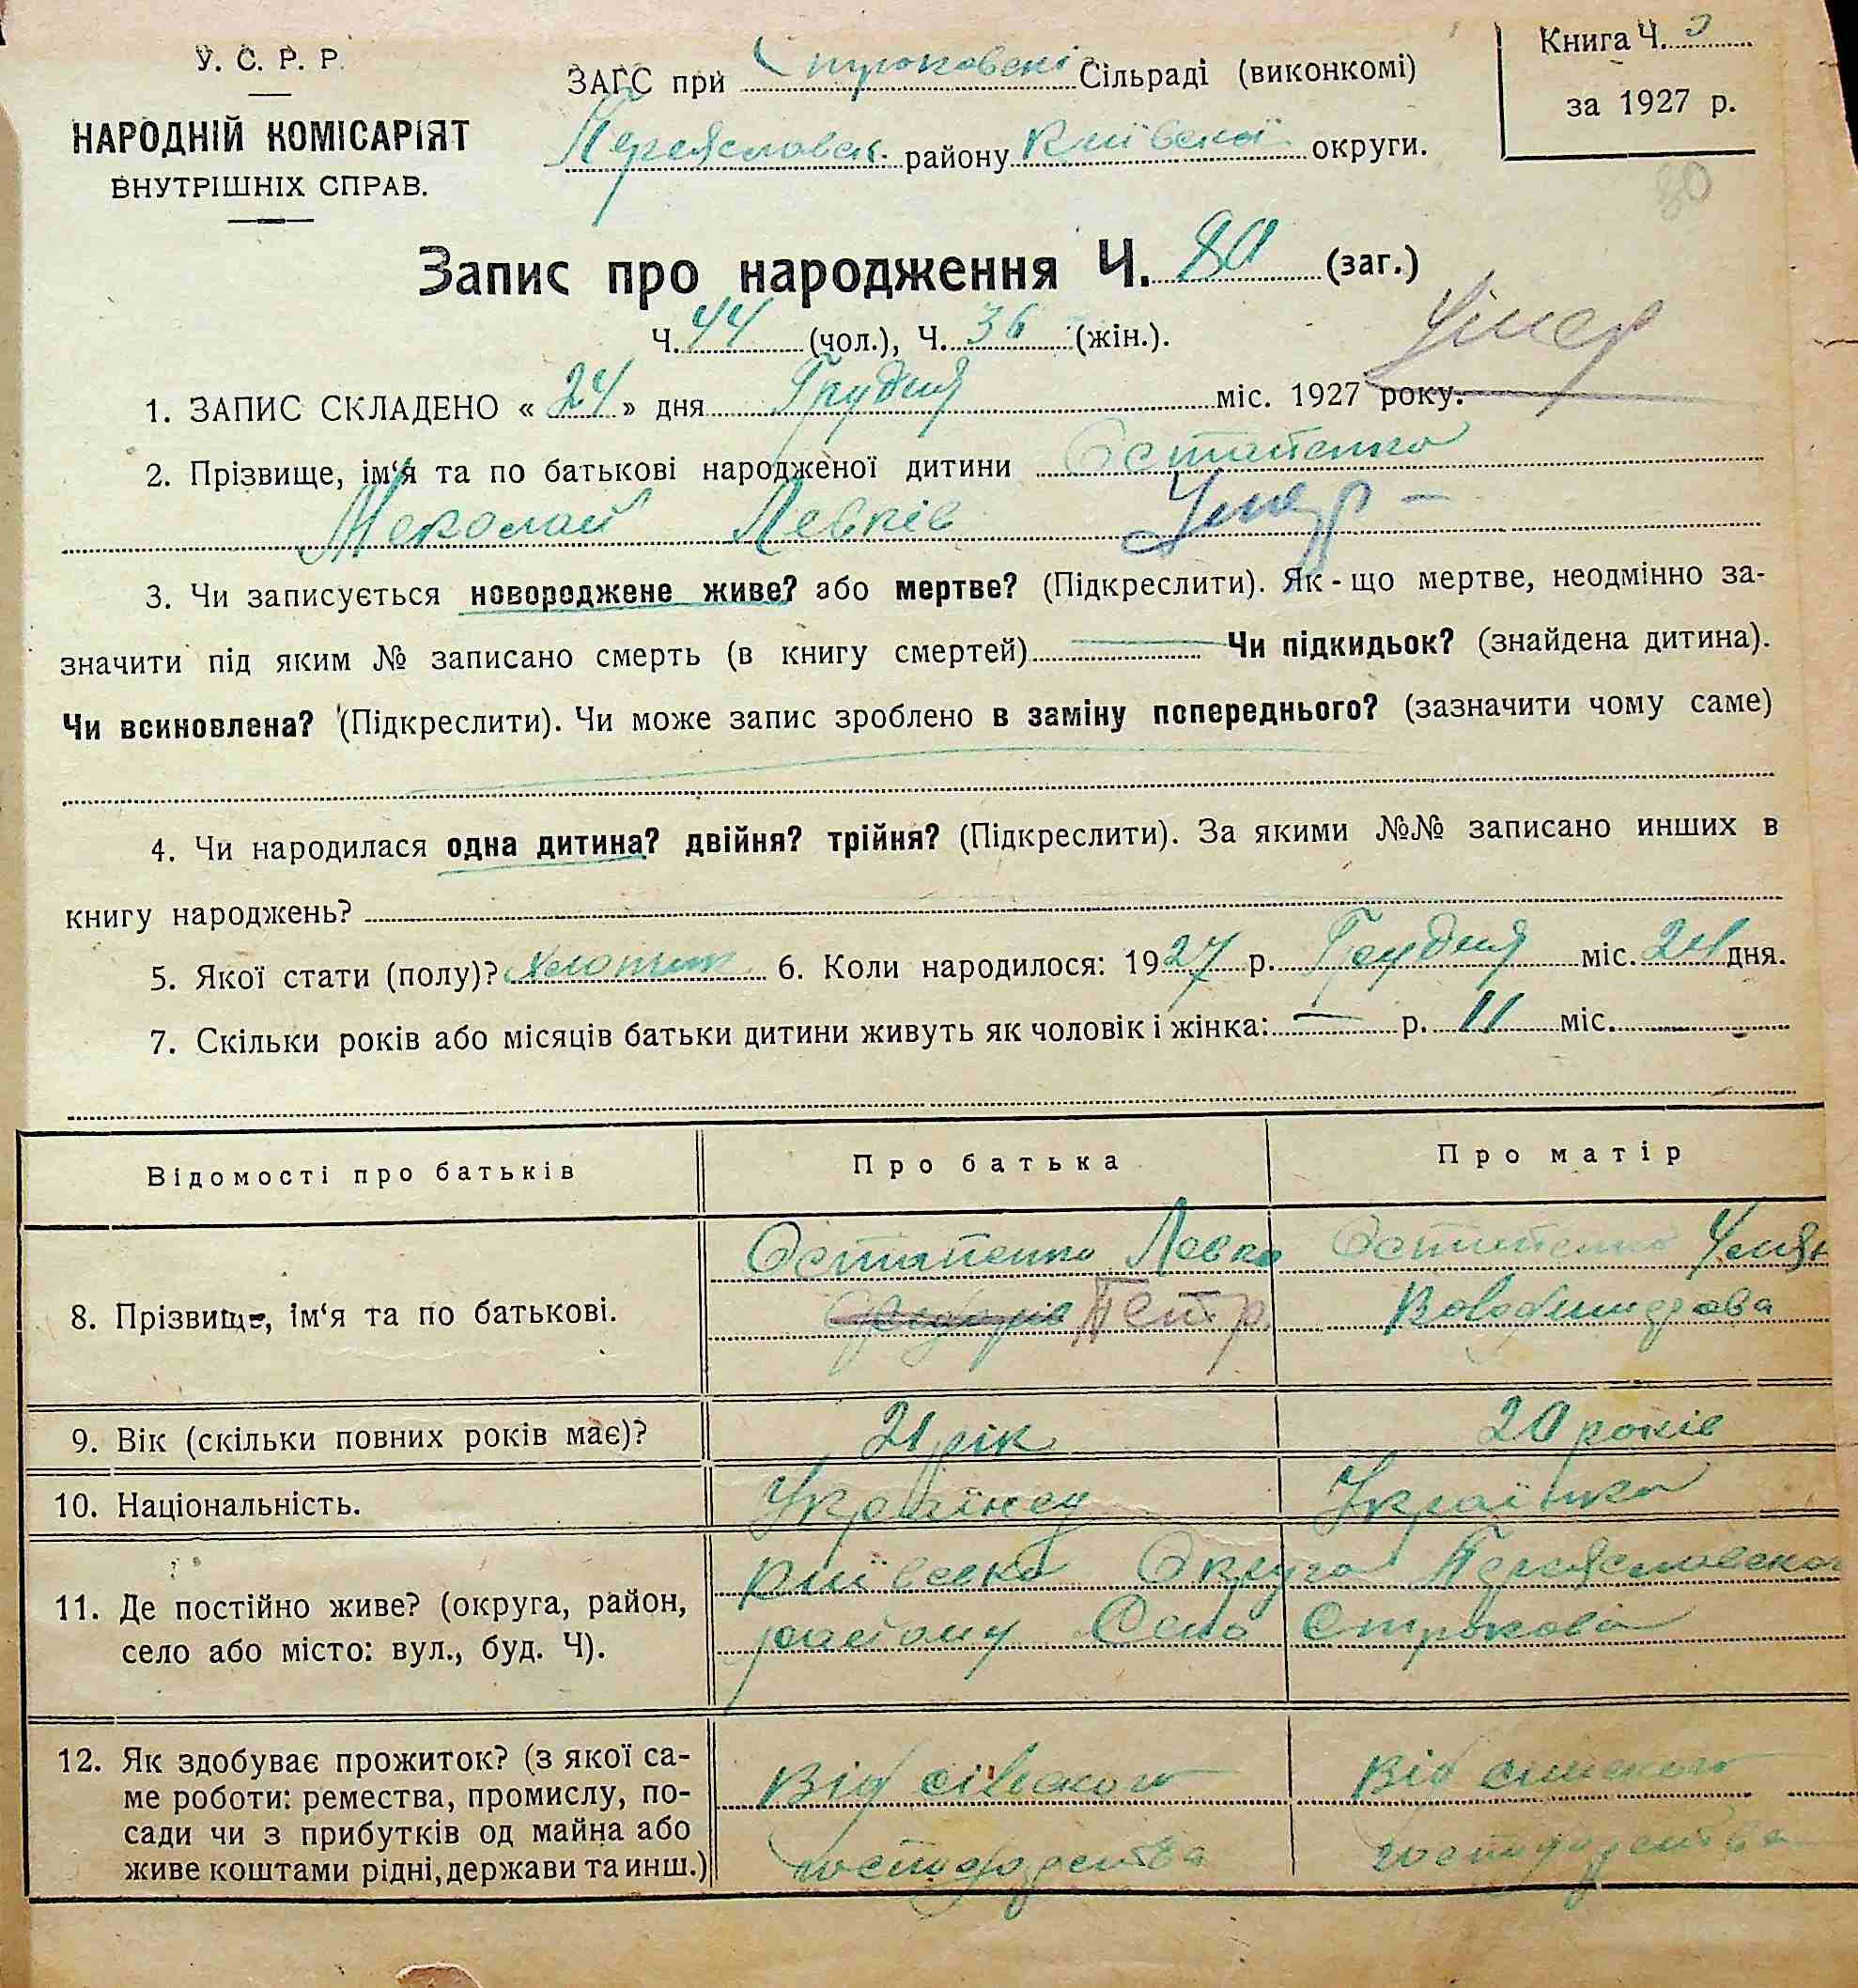 У. С. Р. Р.
НАРОДНІЙ КОМІСАРІЯТ
ВНУТРІШНІХ СПРАВ.
ЗАГС при Строковскі Сільраді (виконкомі)
Переяславск. району Київскої округи.
Книга Ч. 3
за 1927 р.
80
Запис про народження Ч. 80 (заг.)
Ч. 44 (чол.), Ч. 36 (жін.).
Умер
1. ЗАПИС СКЛАДЕНО « 24 » дня Грудня міс. 1927 року.
2. Прізвище, ім‘я та по батькові народженої дитини Остапенко
Миколай Левків Умер –
3. Чи записується новороджене живе? або мертве? (Підкреслити). Як - що мертве, неодмінно за-
значити під яким № записано смерть (в книгу смертей) Чи підкидьок? (знайдена дитина).
Чи всиновлена? (Підкреслити). Чи може запис зроблено в заміну попереднього? (зазначити чому саме)
4. Чи народилася одна дитина? двійня? трійня? (Підкреслити). За якими №№ записано инших в
книгу народжень?
5. Якої стати (полу)? Хлопчик 6. Коли народилося: 1927 р. Грудня міс. 24 дня.
7. Скільки років або місяців батьки дитини живуть як чоловік і жінка: — р. 11 міс.
Відомості про батьків Про батька Про матір
8. Прізвище, ім‘я та по батькові. Остапенко Левко Остапенко
Петр. Володимирова
9. Вік (скільки повних років має)? 21 рік 20 років
10. Національність. Українец Українка
11. Де постійно живе? (округа, район,
село або місто: вул., буд. Ч).
Київська Округа Переяславского
району Село Строкова
12. Як здобуває прожиток? (з якої са-
ме роботи: ремества, промислу, по-
сади чи з прибутків од майна або
живе коштами рідні, держави та инш.)
Від сільского
господарства
Від сільского
господарства